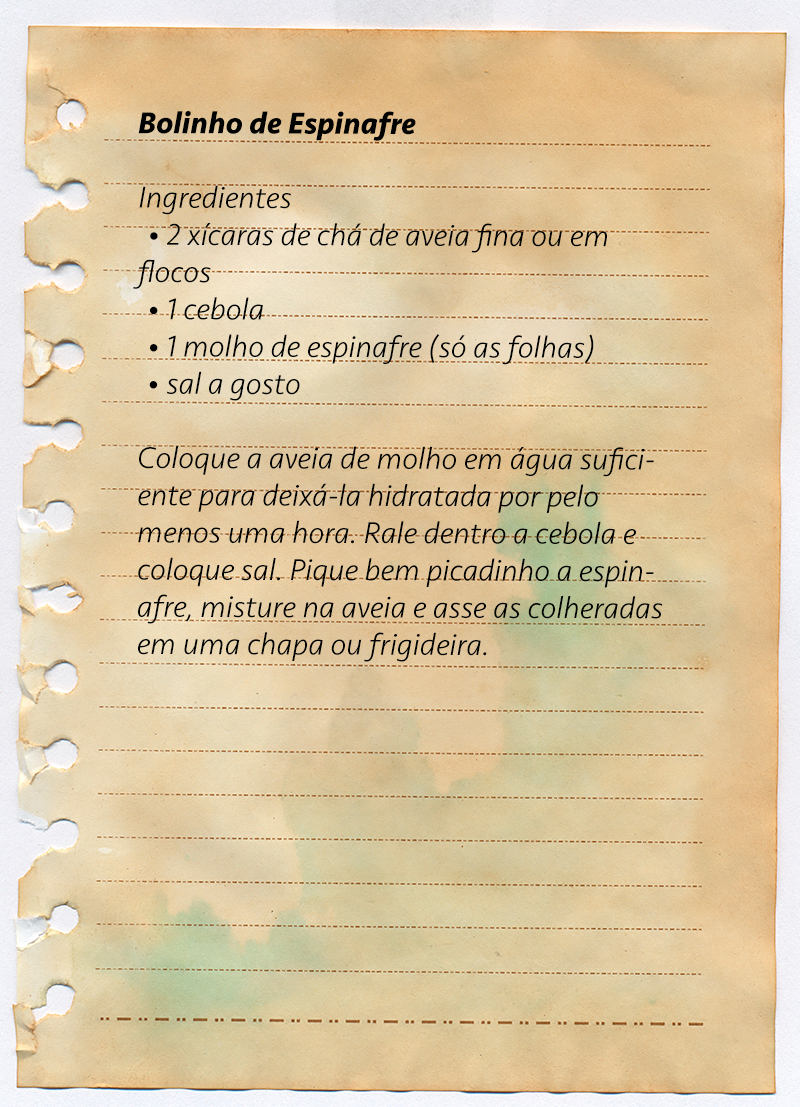 Bolinho de Espinafre
Ingredientes
• 2 xícaras de chá de aveia fina ou em
flocos
• 1 cebola
• 1 molho de espinafre (só as folhas)
• sal a gosto
Coloque a aveia de molho em água sufici-
ente para deixá-la hidratada por pelo
menos uma hora. Rale dentro a cebola e
coloque sal. Pique bem picadinho a espin-
afre, misture na aveia e asse as colheradas
em uma chapa ou frigideira.